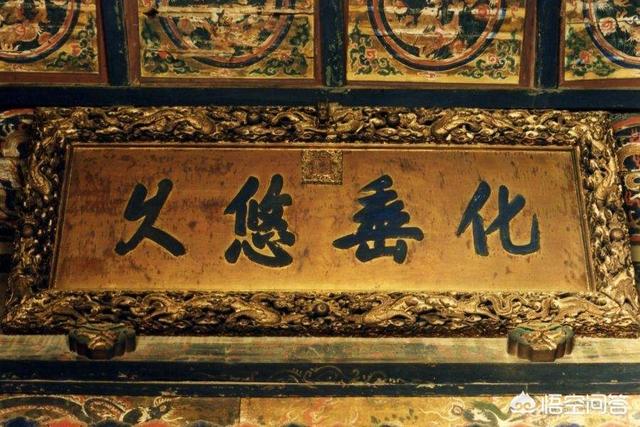 化垂悠久
悟空问答